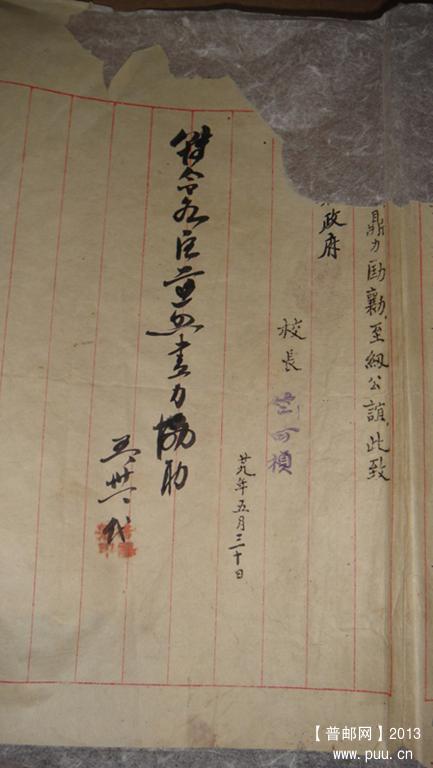 鼎力勷助,至紉公誼,此致
政府
校長 竺可楨
廿九年五月三十日
令各區 盡力協助
吳 代
【普邮网】2013
www.puu.cn